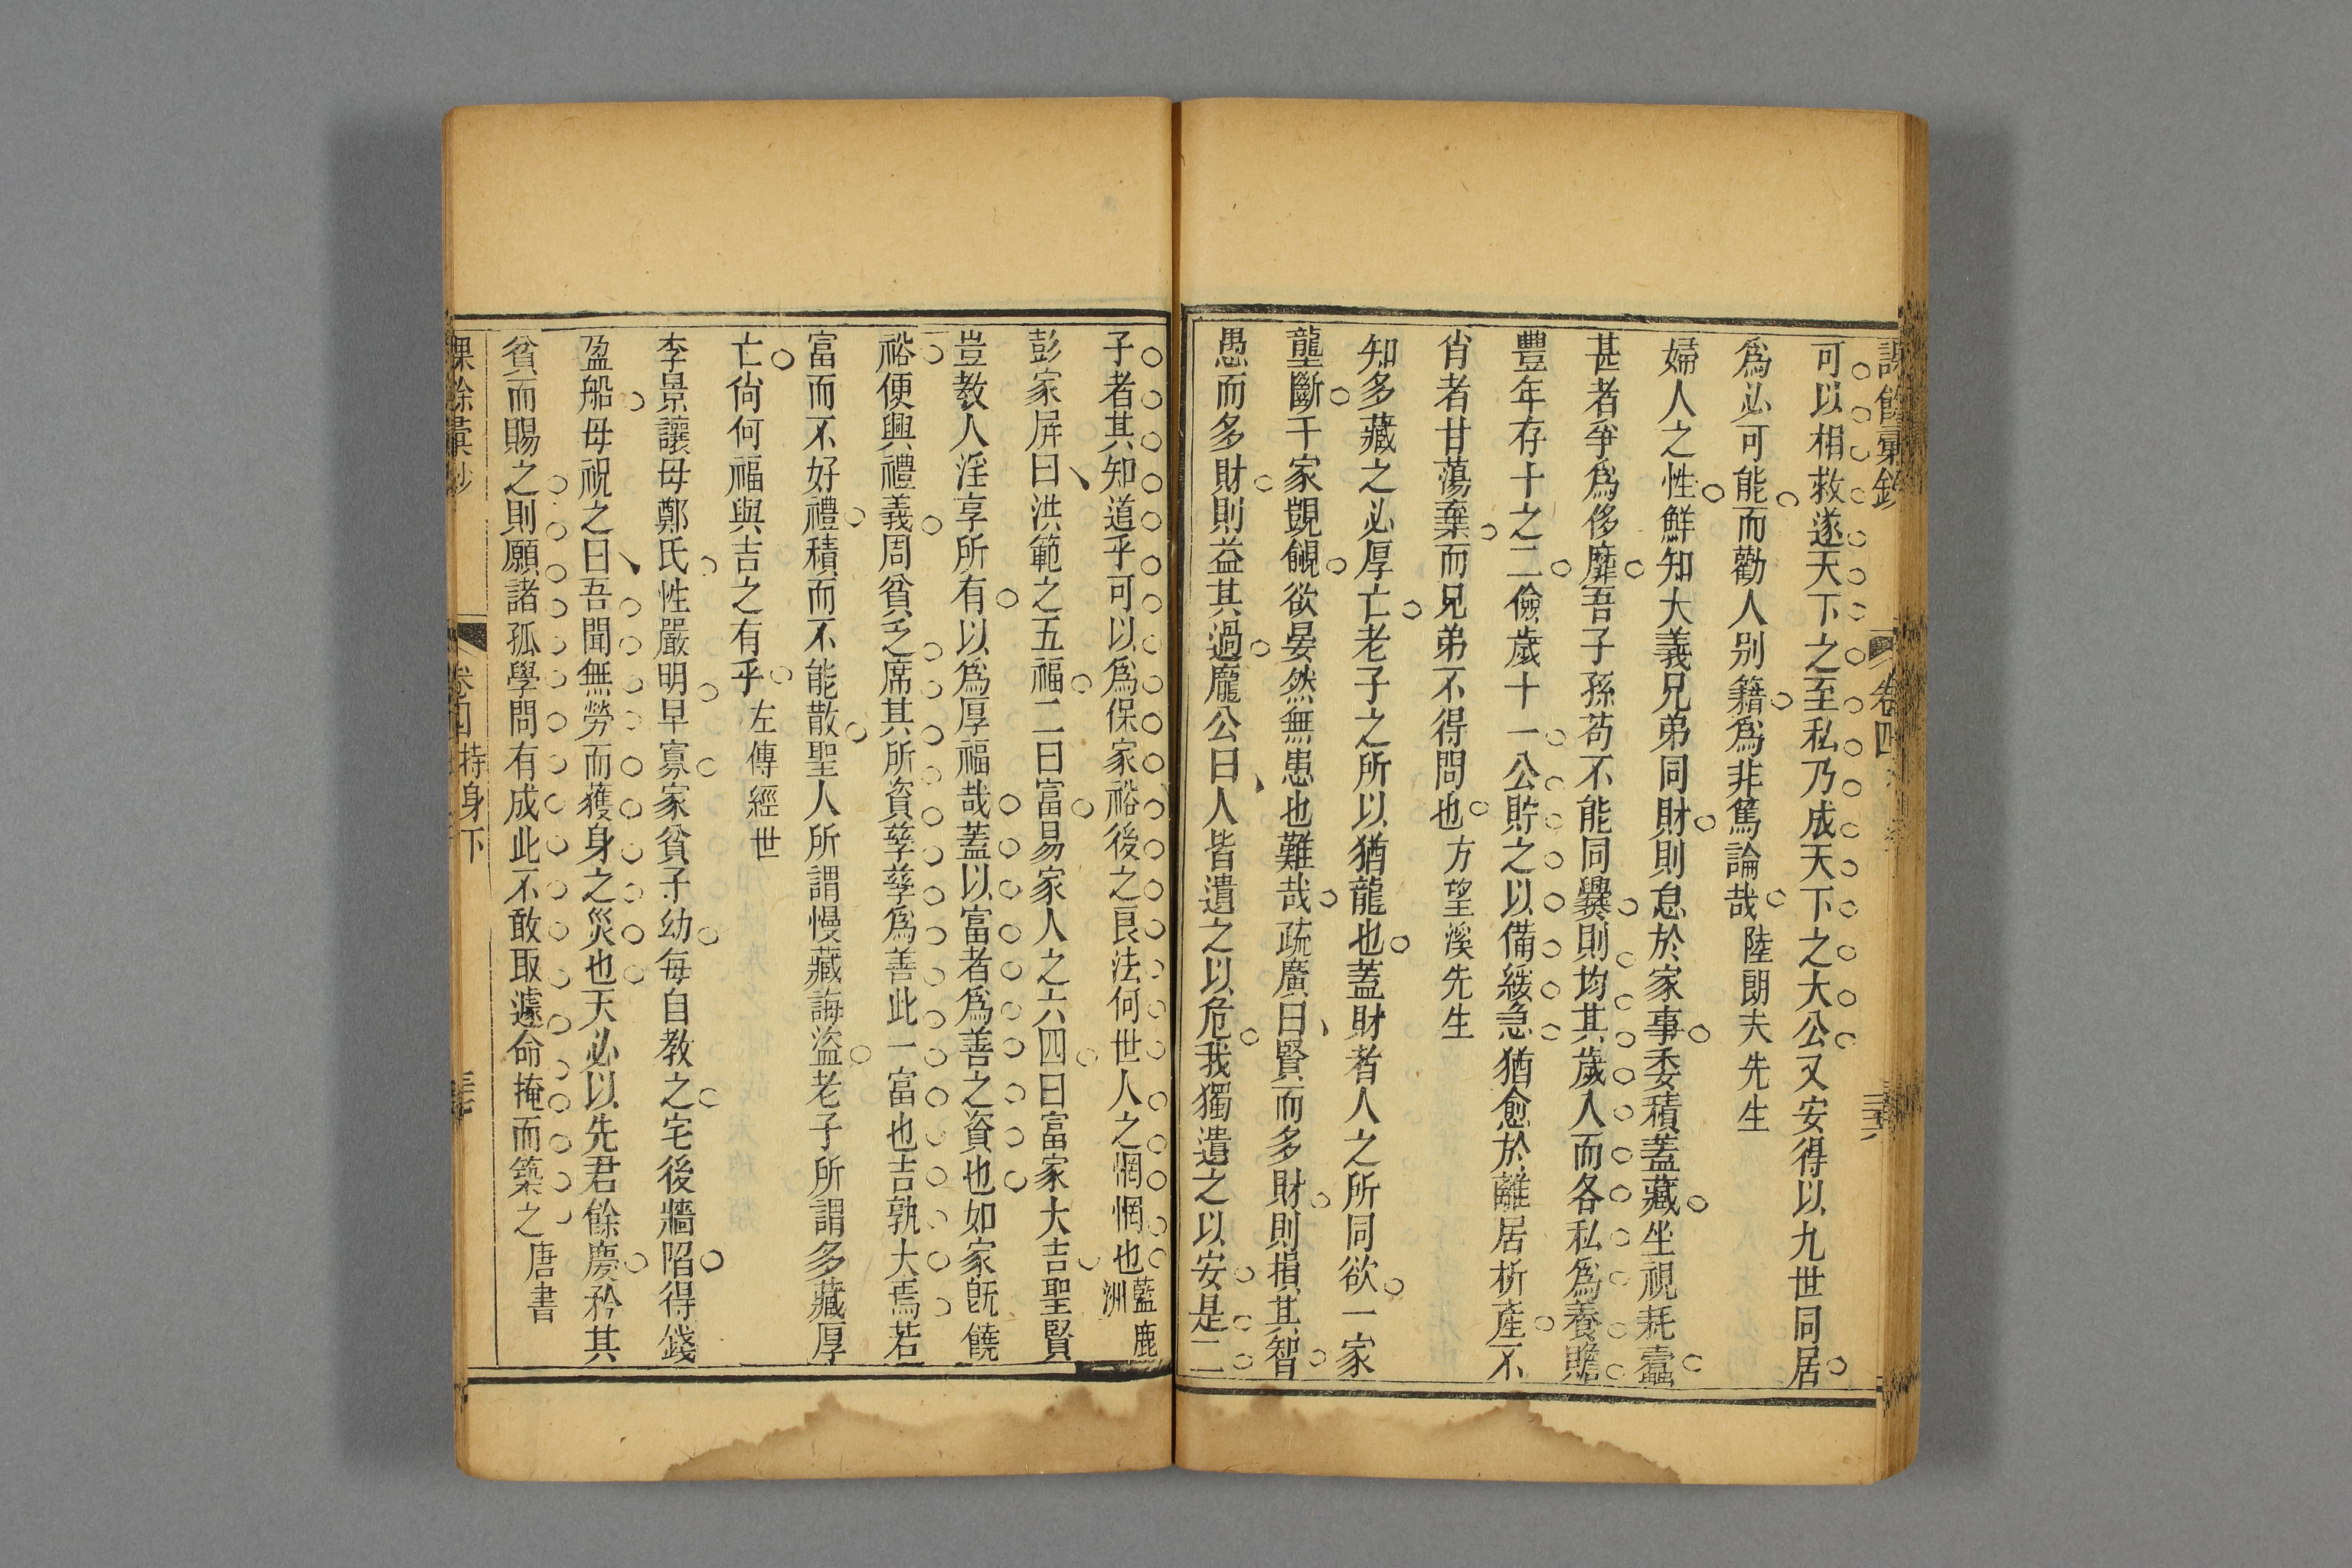 課餘彙鈔 卷四 三十六
可以相救遂天下之至私乃成天下之大公又安得以九世同居
爲必可能而勸人别籍爲非篤論哉 陸朗夫先生
婦人之性鮮知大義兄弟同財則怠於家事委積蓋藏坐視耗蠹
甚者爭爲侈靡吾子孫苟不能同爨則均其歲入而各私爲養贍
豐年存十之二儉歲十一公貯之以備綏急猶愈於離居析產不
肖者甘蕩棄而兄弟不得問也 方望溪先生
知多藏之必厚亡老子之所以猶龍也蓋財者人之所同欲一家
壟斷千家覬覦欲晏然無患也難哉疏廣曰賢而多財則損其智
愚而多財則益其過龐公曰人皆遺之以危我獨遺之以安是二
子者其知道乎可以爲保家裕後之良法何世人之惘惘也 藍鹿洲
彭家屏曰洪範之五福二曰富易家人之六四曰富家大吉聖賢
豈教人淫享所有以爲厚福哉蓋以富者爲善之資也如家旣饒
裕便興禮義周貧乏席其所資孳孳爲善此一富也吉孰大焉若
富而不好禮積而不能散聖人所謂慢藏誨盜老子所謂多藏厚
亡尙何福與吉之有乎 左傳經世
李景讓母鄭氏性嚴明早寡家貧子幼每自教之宅後牆陷得錢
盈船母祝之曰吾聞無勞而獲身之災也天必以先君餘慶矜其
貧而賜之則願諸孤學問有成此不敢取遽命掩而築之 唐書
課餘彙鈔 卷四 持身下